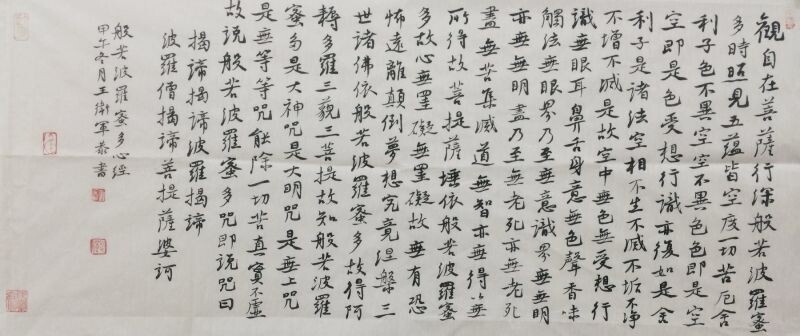 觀自在菩薩行深般若波羅蜜
多時照見五蘊皆空度一切苦厄舍
利子色不異空空不異色色即是空
空即是色受想行識亦復如是舍
利子是諸法空相不生不滅不垢不净
不增不減是故空中無色無受想行
識無眼耳鼻舌身意無色聲香味
觸法無眼界乃至無意識界無無明
亦無無明盡乃至無老死亦無老死
盡無苦集滅道無智亦無得以無
所得故菩提薩埵依般若波羅蜜
多故心無罣礙無罣礙故無有恐
怖遠離顛倒夢想究竟涅槃三
世諸佛依般若波羅蜜多故得阿
耨多羅三藐三菩提故知般若波羅
蜜多是大神咒是大明咒是無上咒
是無等等咒能除一切苦真實不虛
故說般若波羅蜜多咒即說咒曰
揭諦揭諦波羅揭諦
波羅僧揭諦菩提薩婆訶
般若波羅蜜多心經
甲午冬月王衛軍恭書